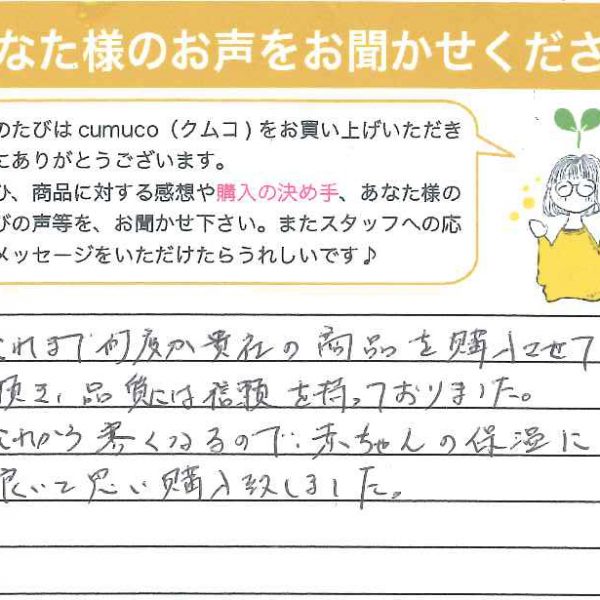 なた様のお声をお聞かせくださ
のたびはcumuco（クムコ)をお買い上げいただき
にありがとうございます。
ひ、商品に対する感想や購入の決め手、あなた様の
びの声等を、お聞かせ下さい。またスタッフへの応
メッセージをいただけたらうれしいです♪
これまで何度か貴社の商品を購入させて
頂き、品質には信頼を持っておりました。
これから寒くなるので、赤ちゃんの保湿に
良いと思い購入致しました。